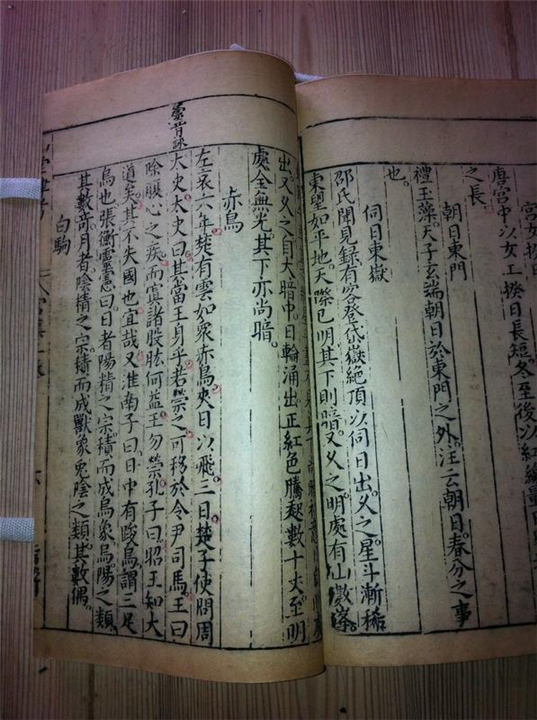 宮女
唐宮中以女工揆日長短冬至後以紅
之長
朝日東門
禮玉藻天子玄端朝日於東門之外注云朝日春分之事
也
伺日東嶽
邵氏聞見錄有客登岱嶽絶頂以伺日出久之星斗漸稀
東望如平地天際已明其下則暗又久之明處有山數峯
出又久之自大暗中日輪涌出正紅色騰起數十丈至明
處全無光其下亦尚暗
赤鳥
左哀六年楚有雲如衆赤鳥夾日以飛三日楚子使問周
大史大史曰其當王身乎若禜之可移於令尹司馬王曰
除腹心之疾而寘諸股肱何益王勿禜孔子曰昭王知大
道矣其不失國也宜哉又淮南子曰日中有踆烏謂三足
烏也張衡靈憲曰日者陽精之宗積而成烏象烏陽之類
其數奇月者陰精之宗積而成獸象兎陰之類其數偶
白駒